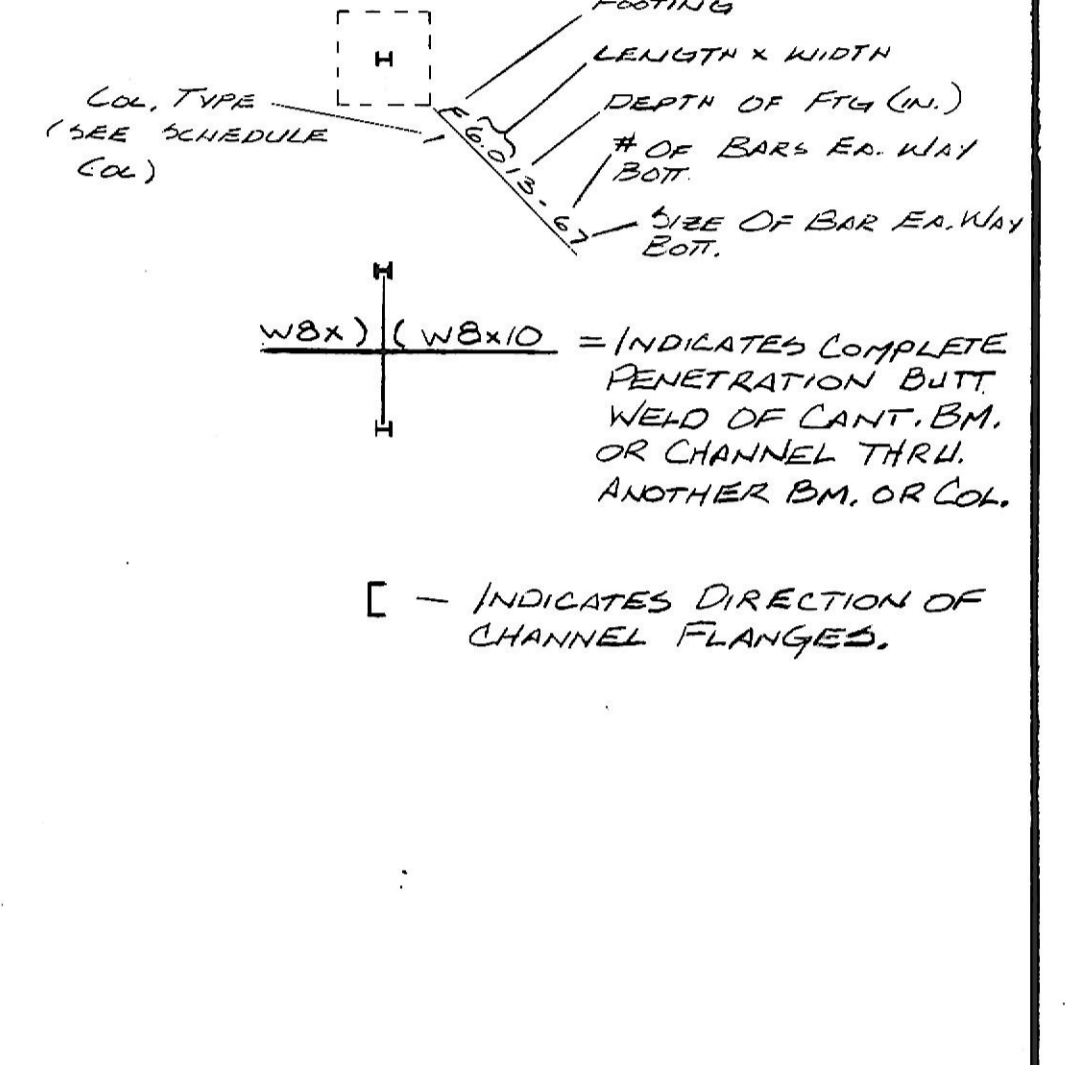 FOOTING
LENGTH x WIDTH
COL. TYPE
(SEE SCHEDULE
COL)
DEPTH OF FTG (IN.)
# OF BARS EA. WAY
BOTT.
SIZE OF BAR EA. WAY
BOTT.
F6.013-67
1
H
H
W8x ) ( W8x10 = INDICATES COMPLETE
PENETRATION BUTT
WELD OF CANT. BM.
OR CHANNEL THRU.
ANOTHER BM. OR COL.
H
[ — INDICATES DIRECTION OF
CHANNEL FLANGES.